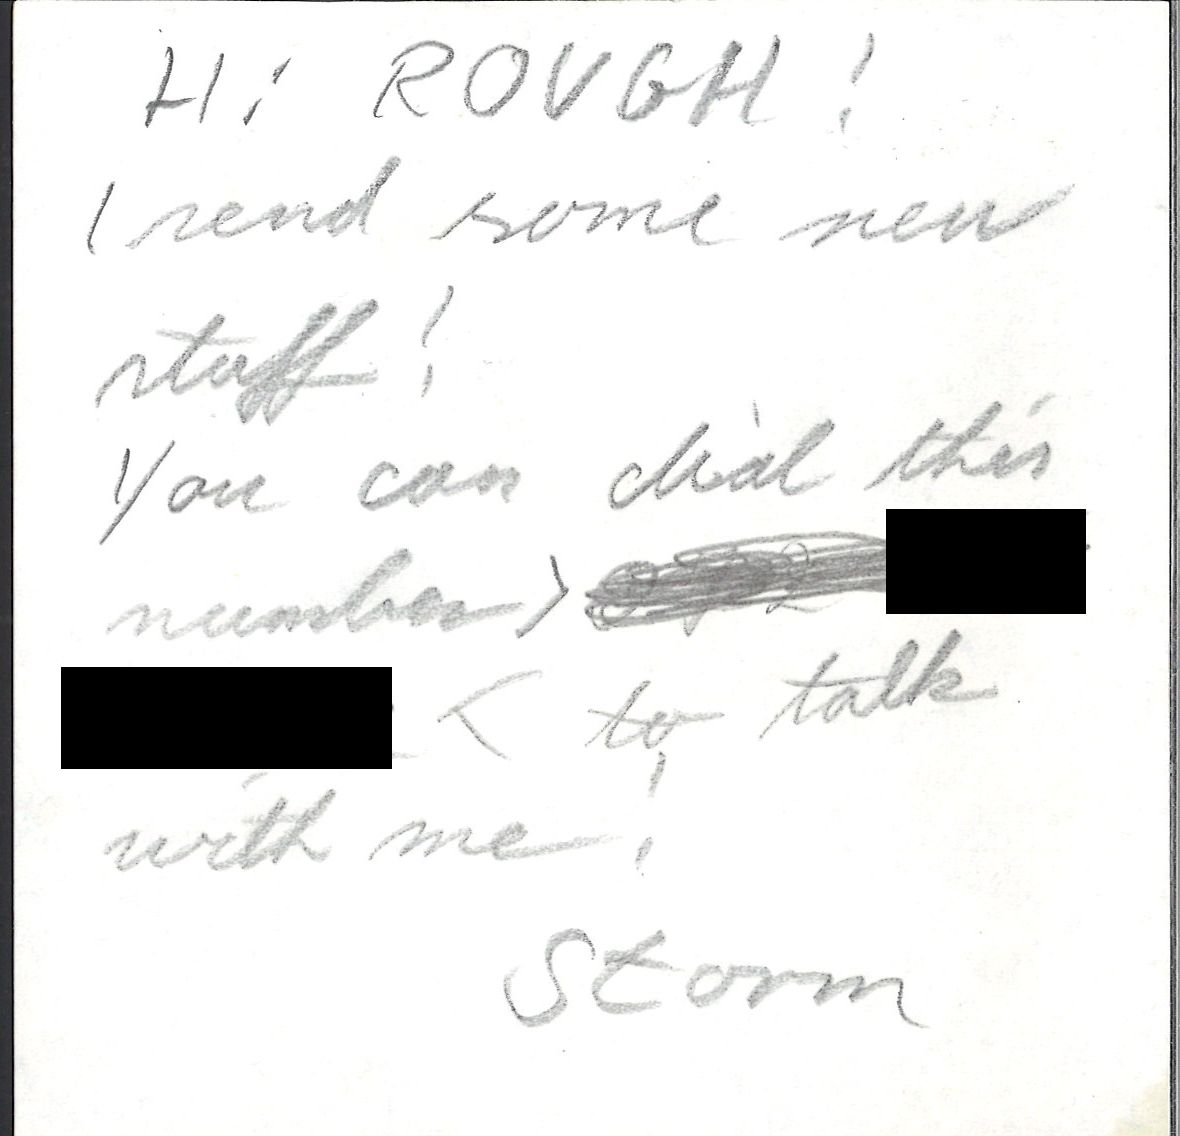 Hi ROUGH!
I send some new
stuff!
You can dial this
number >
< to talk
with me!
Storm